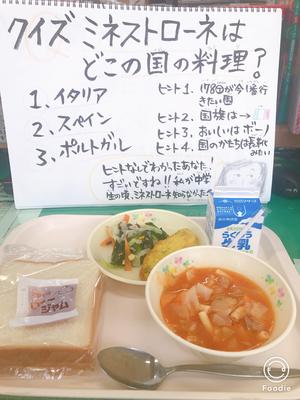 クイズ ミネストローネは
どこの国の料理?
1、イタリア
2、スペイン
3、ポルトガル
ヒント1、178㎝が今1番行
きたい国
ヒント2、国旗は→
ヒント3、おいしいはボーノ
ヒント4、国のかたちは長靴
みたい
ヒントなしでわかったあなた!
すごいですね!!私が中学
生の頃、ミネストローネ知らなかった
ジャム
牛乳
Foodie